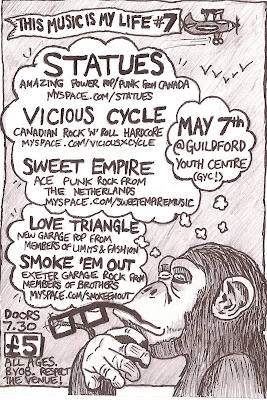 THIS MUSIC IS MY LIFE #7
STATUES
AMAZING POWER POP/PUNK FROM CANADA
MYSPACE.COM/STATUES
VICIOUS CYCLE
CANADIAN ROCK 'N' ROLL HARDCORE
MYSPACE.COM/VICIOUSXCYCLE
MAY 7th
@ GUILDFORD
YOUTH CENTRE
(GYC!)
SWEET EMPIRE
ACE PUNK ROCK FROM
THE NETHERLANDS
MYSPACE.COM/SWEETEMPIREMUSIC
LOVE TRIANGLE
NEW GARAGE POP FROM
MEMBERS OF LIMITS & FASHION
SMOKE 'EM OUT
EXETER GARAGE ROCK FROM
MEMBERS OF BROTHERS
MYSPACE.COM/SMOKEEMOUT
DOORS
7.30
£5
ALL AGES.
B.Y.O.B. RESPECT
THE VENUE!